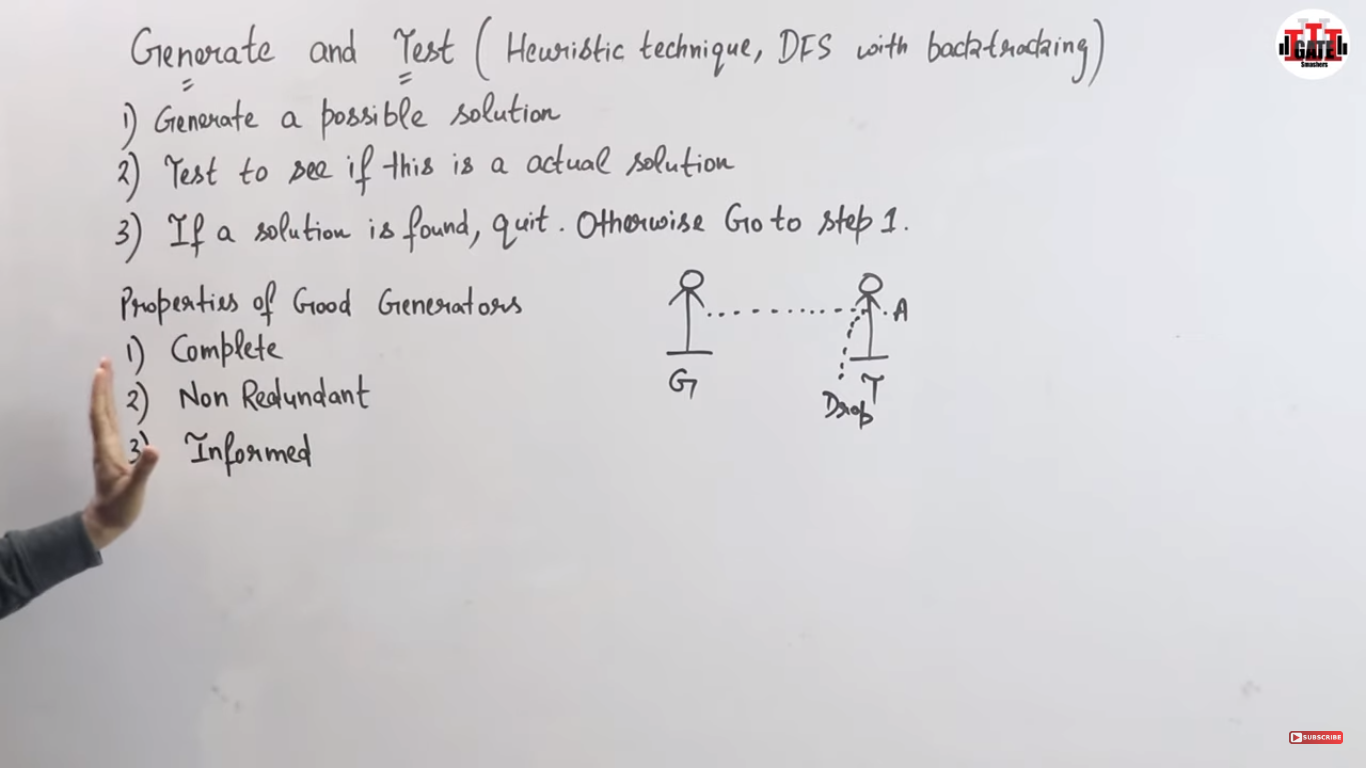 Generate and Test (Heuristic technique, DFS with backtracking)
1) Generate a possible solution
2) Test to see if this is a actual solution
3) If a solution is found, quit. Otherwise Go to step 1.
Properties of Good Generators
1) Complete
2) Non Redundant
3) Informed
A
G
T
Drop
GATE
Smashers
SUBSCRIBE